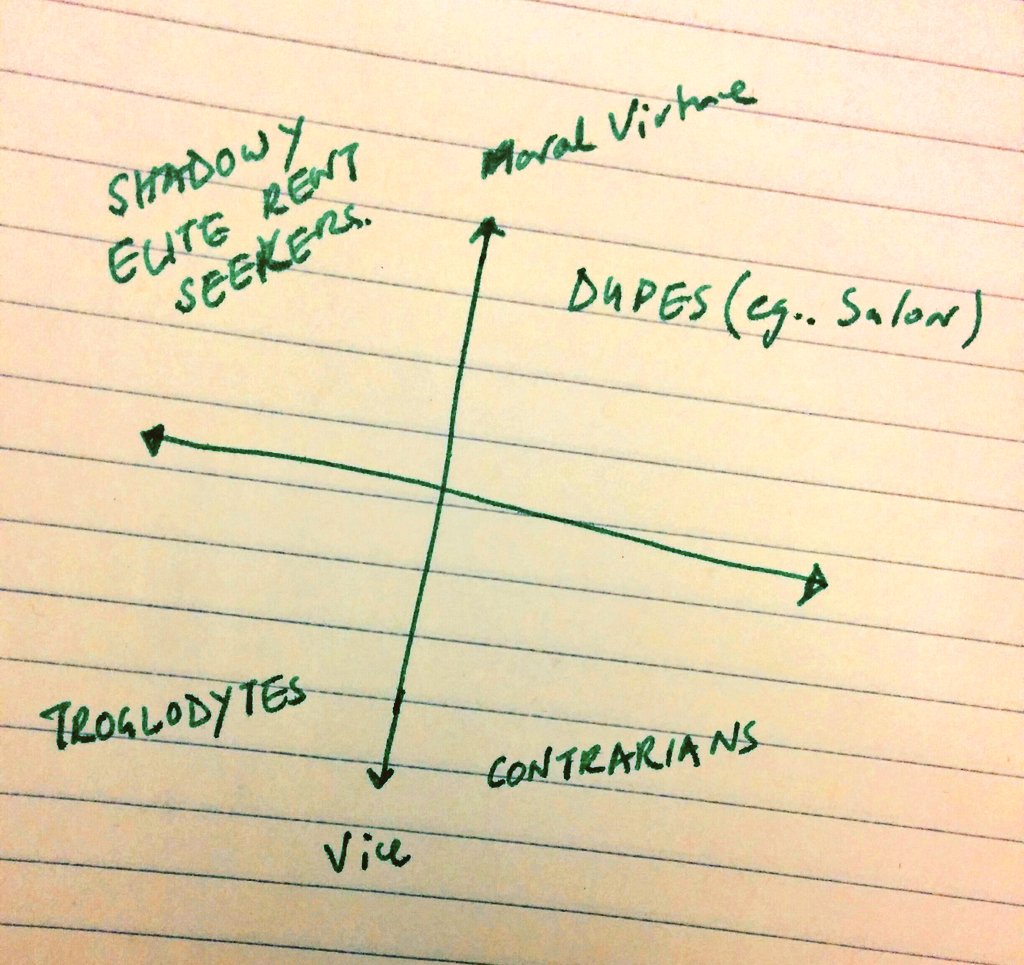 Moral Virtue
SHADOWY
ELITE RENT
SEEKERS.
DUPES (eg.. Salon)
TROGLODYTES
CONTRARIANS
Vice